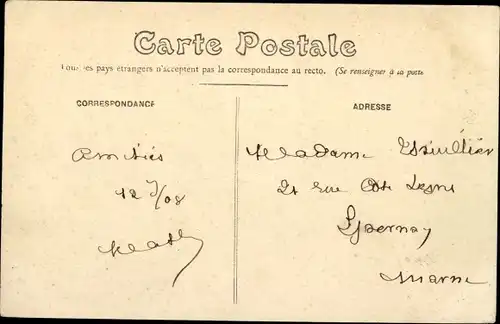 Carte Postale
Tous les pays étrangers n'acceptent pas la correspondance au recto. (Se renseigner à la poste
CORRESPONDANCE
ADRESSE
Amitiés
12 /08
Madame
21 rue
Epernay
Marne